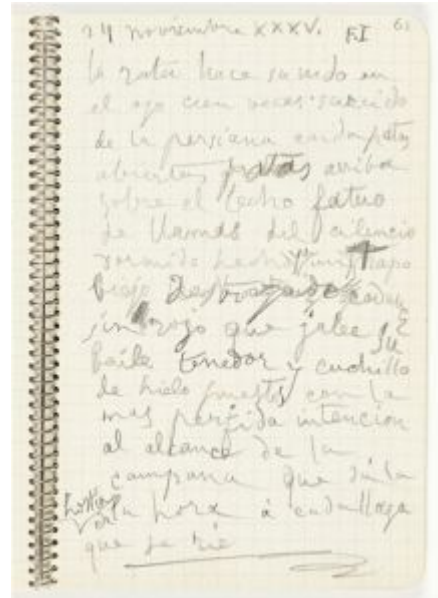 24 noviembre XXXV. F.I 61
la rata hace su nido en
el ojo cien veces
de la persiana patas
abiertas patas arriba
sobre el lecho fatuo
de llamas del silencio
hecho trapo
viejo
sin ojo que jalee su
baile tenedor y cuchillo
de hielo puestos con la
mas perfida intencion
al alcance de la
campana que
la hora á cada llaga
que se rie